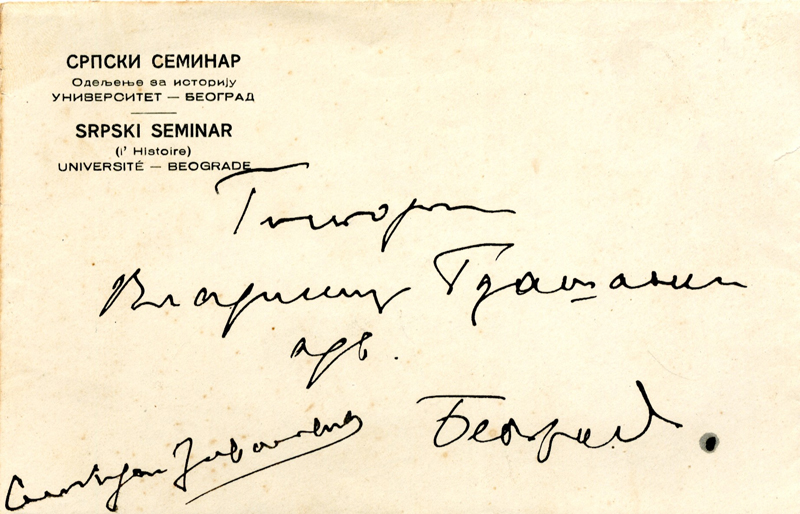 СРПСКИ СЕМИНАР
Одељење за историју
УНИВЕРСИТЕТ — БЕОГРАД
SRPSKI SEMINAR
(i' Histoire)
UNIVERSITÉ — BEOGRADE
Владимир
адв.
Београд.
Слободан Јовановић